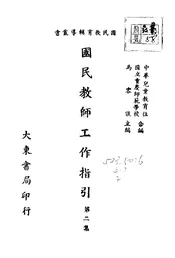 國民教育輔導叢書
中華兒童教育社
國立重慶師範學校 合編
馬客談主編
國民教師工作指引
第二集
大東書局印行